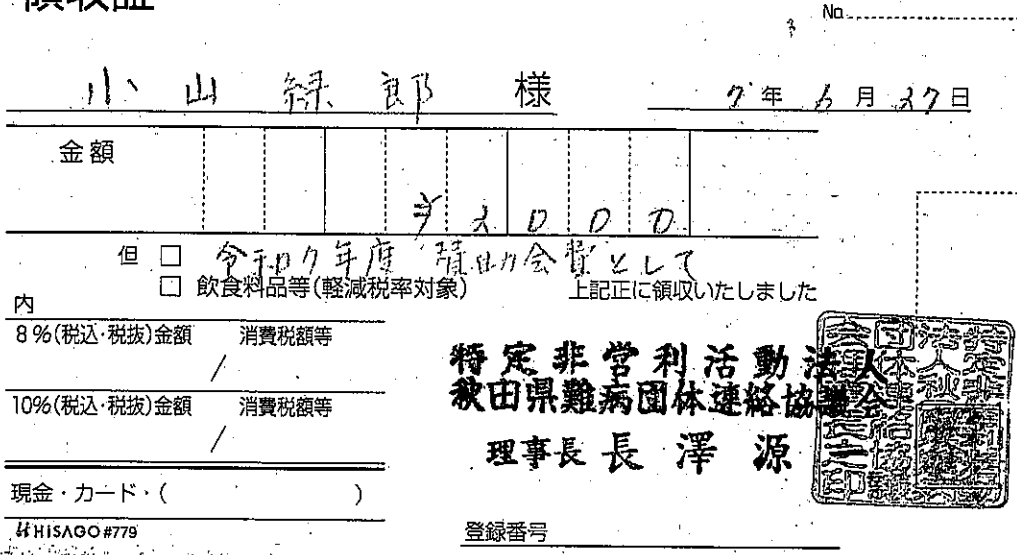 領収証
No.
小山 緑郎 様
7年 6月 27日
金額
¥2000
但 □ 令和7年度 賛助会費として
□ 飲食料品等(軽減税率対象)
上記正に領収いたしました
内
8%(税込・税抜)金額 消費税額等
/
10%(税込・税抜)金額 消費税額等
/
現金・カード・( )
HISAGO #779
特定非営利活動法人
秋田県難病団体連絡協議会
理事長 長澤 源
登録番号